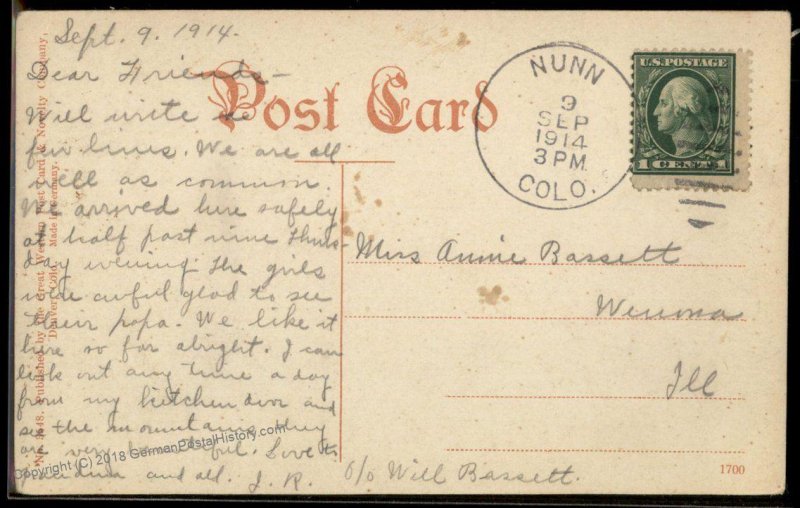 Sept. 9. 1914.
Dear Friends –
Will write a
few lines. We are all
well as common.
We arrived here safely
at half past nine Thurs-
day evening. The girls
were awful glad to see
their papa. We like it
here so far alright. I can
look out any time a day
from my kitchen door and
see the mountains they
are very beautiful. Love to
and all. J. R.
Post Card
NUNN
9
SEP
1914
3 PM
COLO.
U.S. POSTAGE
1 CENT 1
Miss Annie Bassett
Wenona
Ill
c/o Will Bassett.
1700
Published by The Great Western Post Card & Novelty Company,
Denver, Colo. Made in Germany.
Copyright (C) 2018 GermanPostalHistory.com